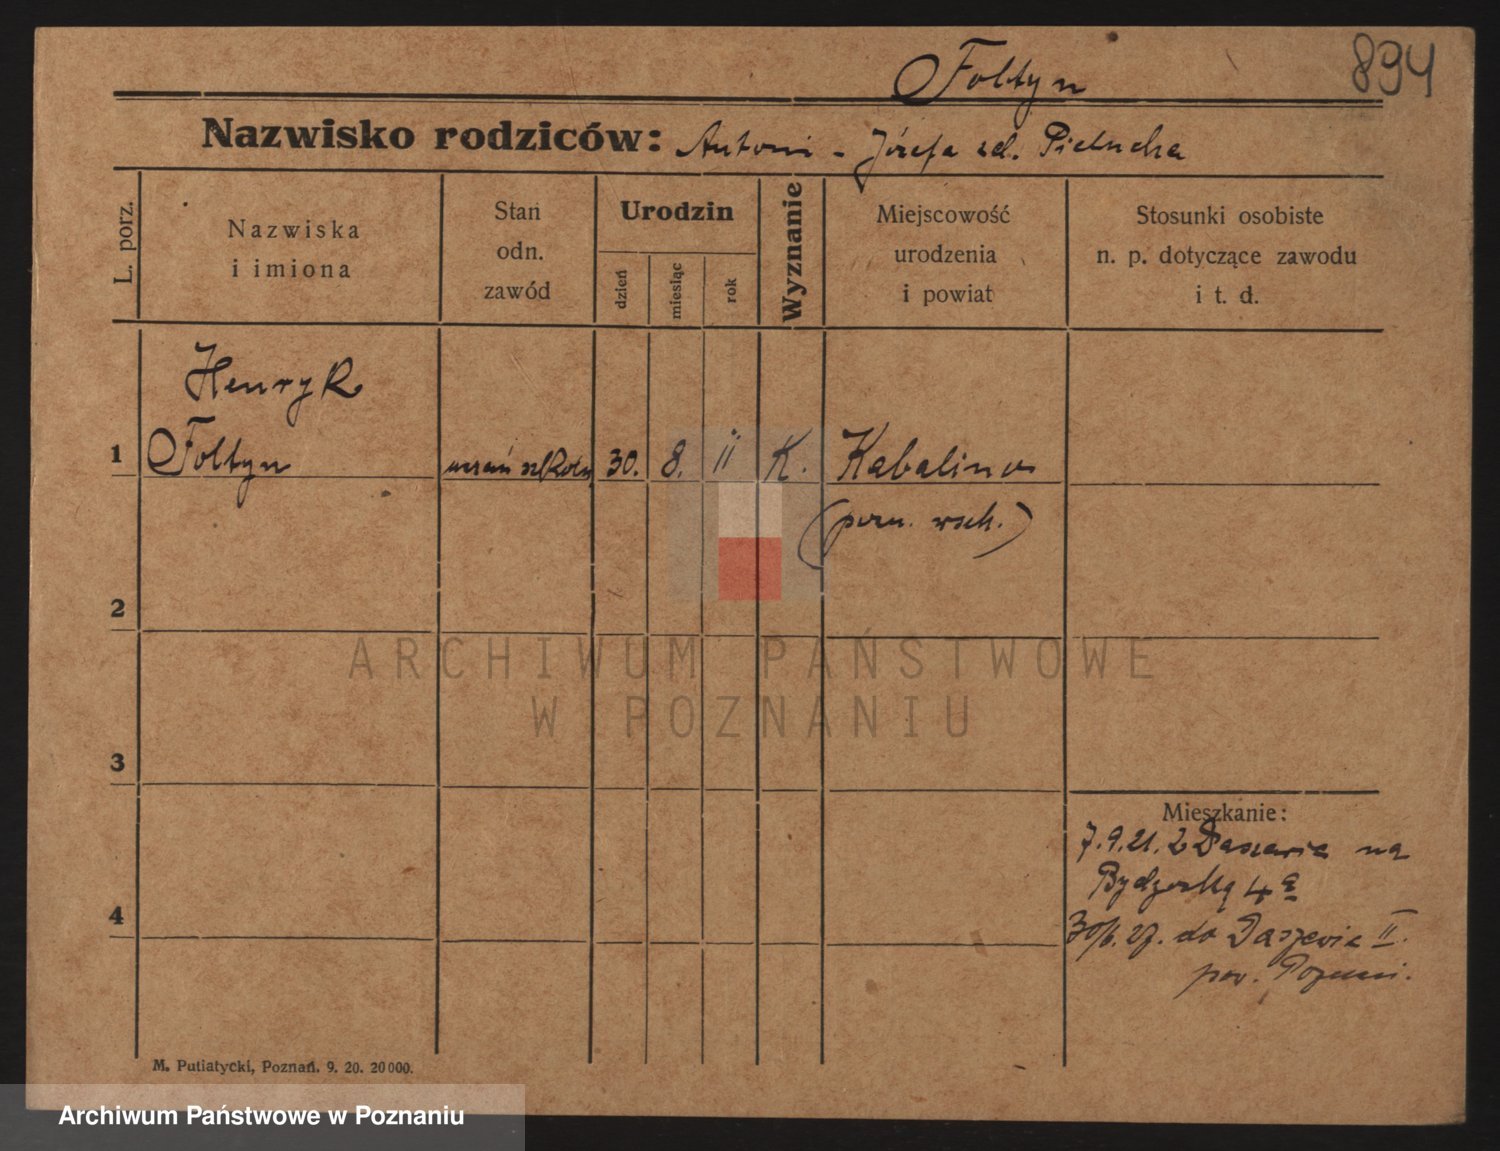 Foltyn
894
Nazwisko rodziców: Antoni - Józefa zd. Pielucha
L. porz.
Nazwiska
i imiona
Stan
odn.
zawód
Urodzin
dzień
miesiąc
rok
Wyznanie
Miejscowość
urodzenia
i powiat
Stosunki osobiste
n. p. dotyczące zawodu
i t. d.
Henryk
1 Foltyn uczeń szkolny 30. 8. 11 K. Kabalino
(pozn. wsch.)
2
3
Mieszkanie:
7.9.21. z Daszewic na
Bydgoską 4a
4
30/6.27. do Daszewic II.
pow. Poznań.
M. Putiatycki, Poznań. 9. 20. 20000.
ARCHIWUM PAŃSTWOWE
W POZNANIU
Archiwum Państwowe w Poznaniu